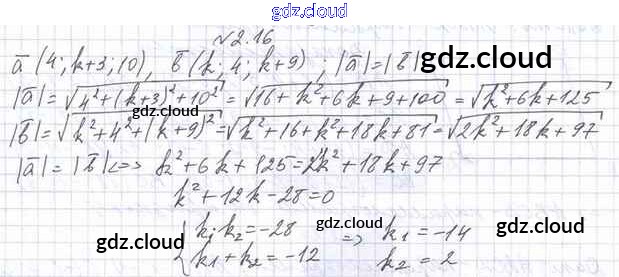 gdz.cloud
№2.16
a̅ (4; k+3; 10), b̅ (k; 4; k+9); |a̅|=|b̅| gdz.cloud
|a̅|=√(4²+(k+3)²+10²)=√(16+k²+6k+9+100)=√(k²+6k+125)
gdz.cloud gdz.cloud
|b̅|=√(k²+4²+(k+9)²)=√(k²+16+k²+18k+81)=√(2k²+18k+97)
|a̅|=|b̅|<=> k²+6k+125=2k²+18k+97
k²+12k-28=0
gdz.cloud { k₁·k₂=-28 gdz.cloud => k₁=-14
k₁+k₂=-12 k₂=2 gdz.cloud
gdz.cloud